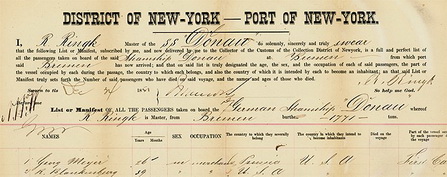 DISTRICT OF NEW-YORK — PORT OF NEW-YORK.
I, R Ringk Master of the SS Donau do solemnly, sincerely and truly swear
that the following List or Manifest, subscribed by me, and now delivered by me to the Collector of the Customs of the Collection District of New-York, is a full and perfect list of
all the passengers taken on board of the said Steamship Donau at Bremen from which port
said Bremen has now arrived; and that on said list is truly designated the age, the sex, and the occupation of each of said passengers, the part
the vessel occupied by each during the passage, the country to which each belongs, and also the country of which it is intended by each to become an inhabitant; and that said List or
Manifest truly sets forth the number of said passengers who have died on said voyage, and the names and ages of those who died.
Sworn to this So help me God.
List or Manifest OF ALL THE PASSENGERS taken on board the German Steamship Donau whereof
R Ringk is Master, from Bremen burthen 1771 tons.
NAMES Age Years Months SEX OCCUPATION The country to which they severally belong The country to which they intend to become inhabitants Died on the voyage Part of the vessel
1 Georg Meyer 26 m merchant U S A
29 U S A